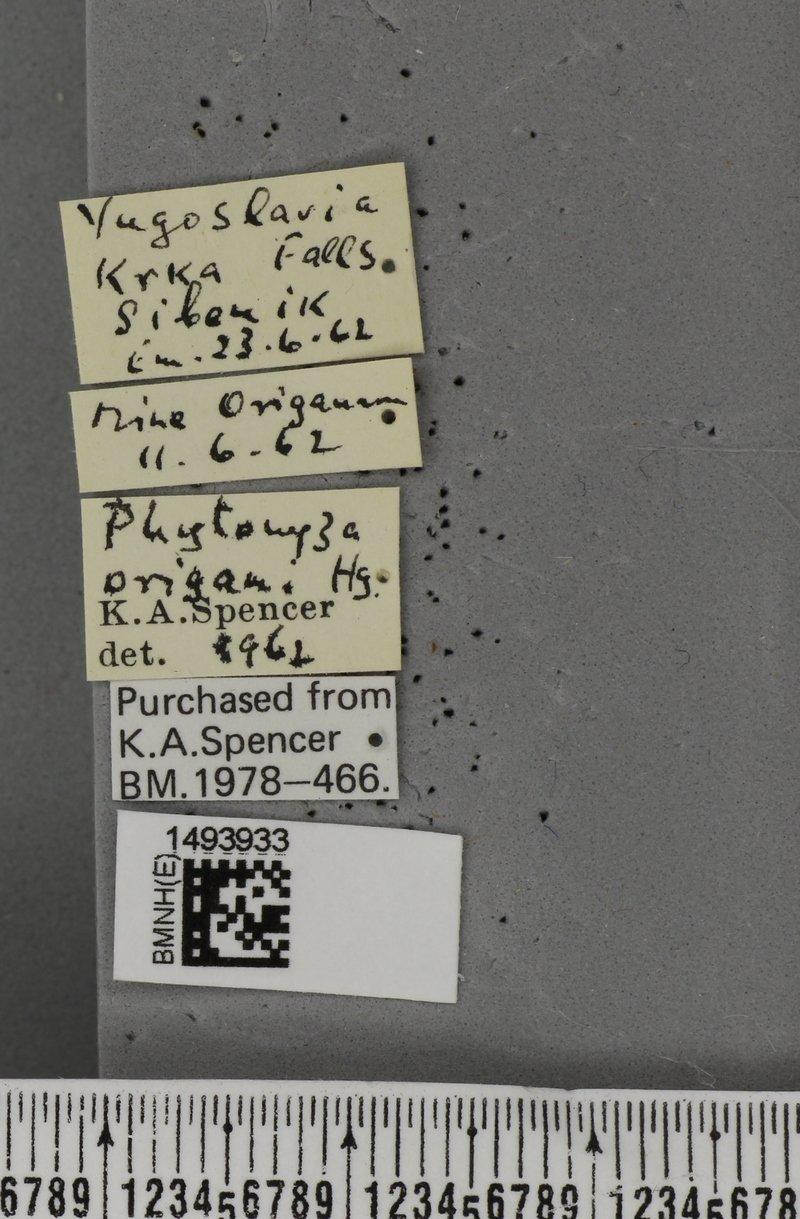 Yugoslavia
Krka Falls
Sibenik
em. 23.6.62
Mine Origanum
11.6.62
Phytomyza
origani Hg.
K.A.Spencer
det. 1962
Purchased from
K.A.Spencer
BM.1978–466.
1493933
BMNH(E)
6789 123456789 123456789 12345678